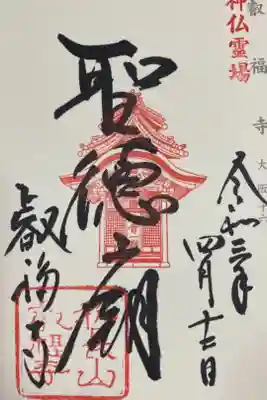 叡福寺 大阪十
神仏霊場
令和三年
四月十二日
聖徳之廟
叡福寺